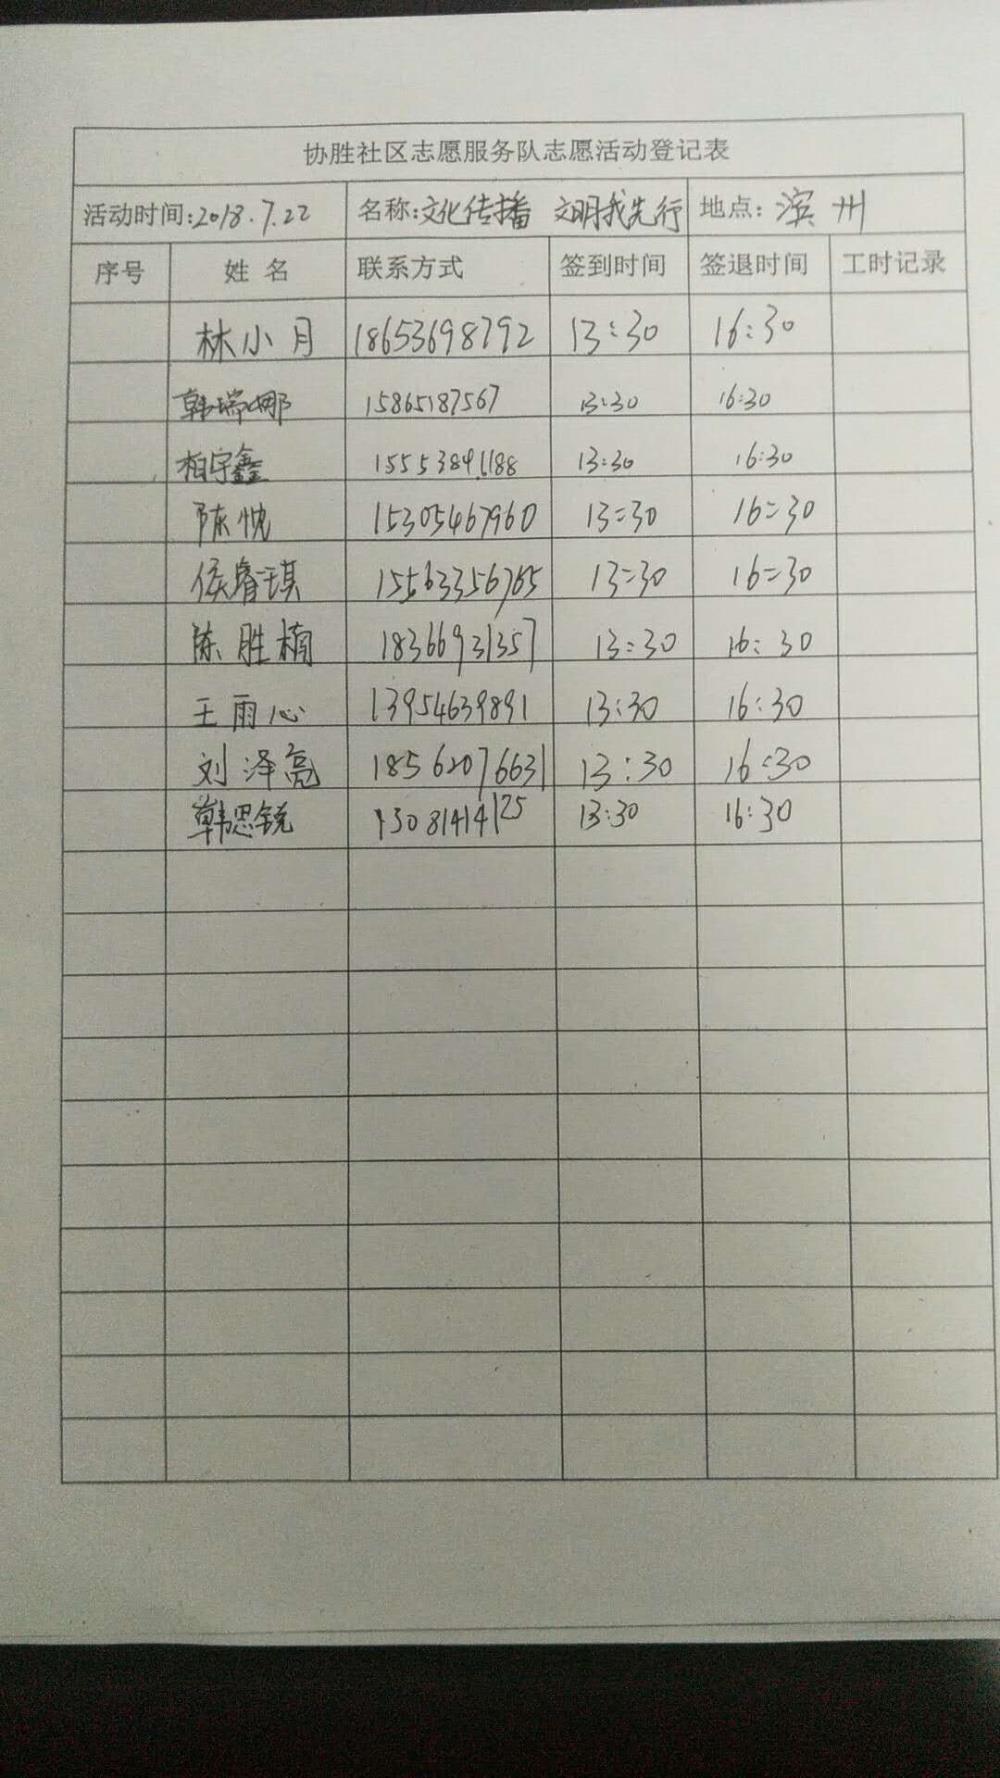 协胜社区志愿服务队志愿活动登记表
活动时间:2018.7.22 名称:文化传播 文明我先行 地点:滨州
序号 姓名 联系方式 签到时间 签退时间 工时记录
林小月 18653698792 13:30 16:30
韩瑞娜 15865187567 13:30 16:30
柏宇鑫 15553841188 13:30 16:30
陈悦 15305467960 13:30 16:30
侯睿琪 15563356765 13:30 16:30
陈胜楠 18366931357 13:30 16:30
王雨心 13954639891 13:30 16:30
刘泽亮 18562076631 13:30 16:30
韩思锐 15081414125 13:30 16:30